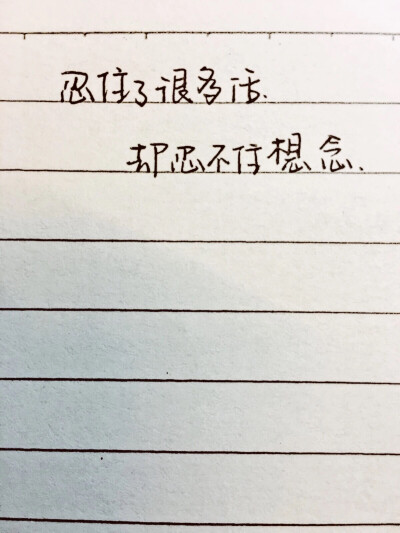 忍住了很多话.
却忍不住想念.